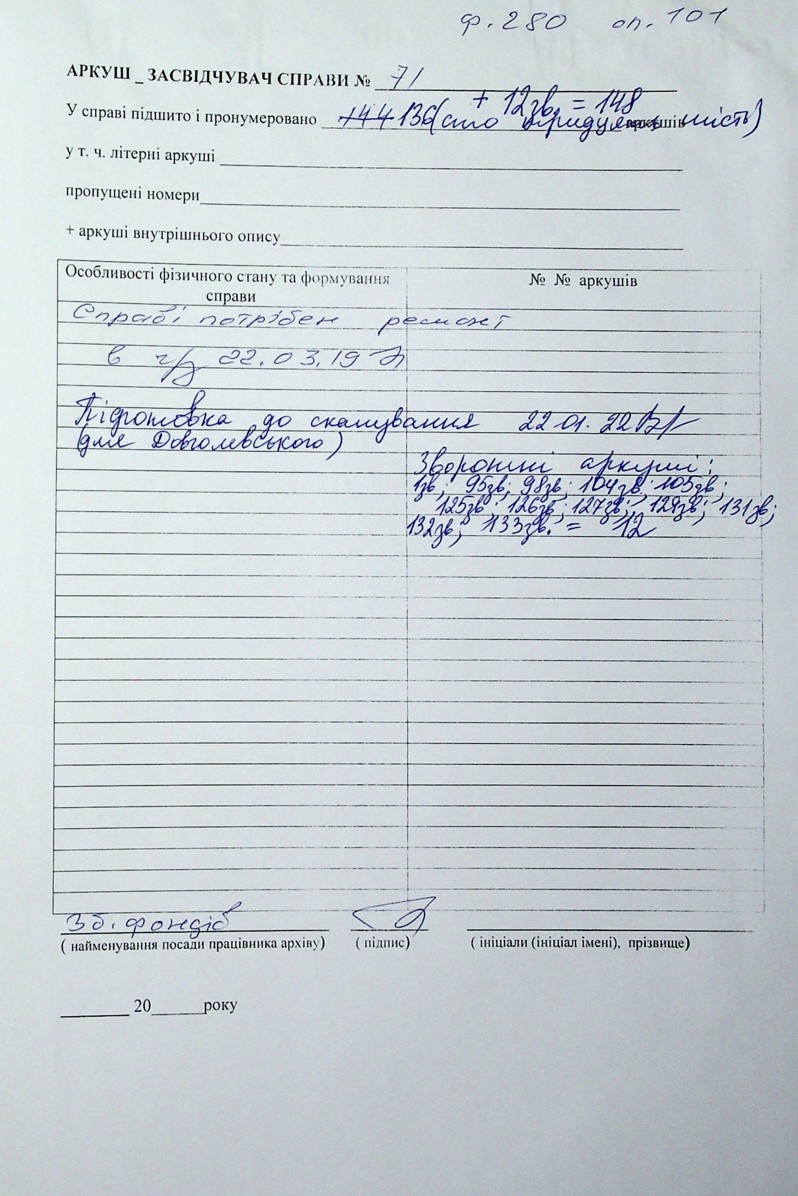 ф. 280 оп. 101
АРКУШ _ ЗАСВІДЧУВАЧ СПРАВИ № 71
+ 12зв. = 148
У справі підшито і пронумеровано 144 136 (сто тридцять шість) аркушів
у т. ч. літерні аркуші
пропущені номери
+ аркуші внутрішнього опису
Особливості фізичного стану та формування справи
№ № аркушів
Справі потрібен ремонт
в 22.03.19
Підготовка до сканування 22.01.22
(для Довголевського)
Зворотні аркуші:
1зв; 95зв; 98зв; 104зв; 105зв;
125зв; 126зв; 127зв; 129зв; 131зв;
132зв; 133зв. = 12
Зб. фондів
( найменування посади працівника архіву) ( підпис) ( ініціали (ініціал імені), прізвище)
20 року